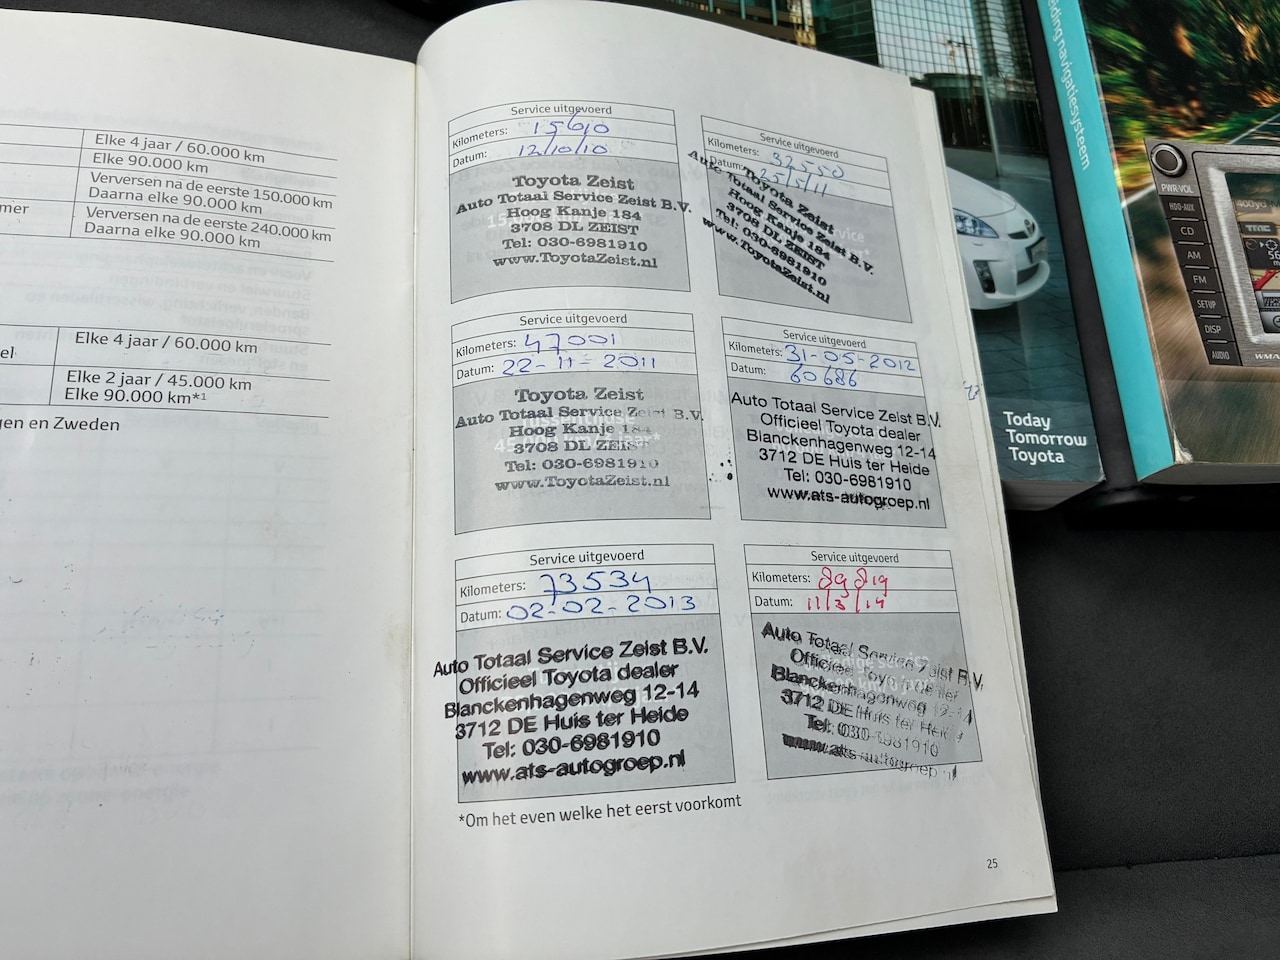 Elke 4 jaar / 60.000 km
Elke 90.000 km
Verversen na de eerste 150.000 km
Daarna elke 90.000 km
mer
Verversen na de eerste 240.000 km
Daarna elke 90.000 km
Elke 4 jaar / 60.000 km
el
Elke 2 jaar / 45.000 km
Elke 90.000 km*1
gen en Zweden
Service uitgevoerd
Kilometers: 15610
Datum: 12/10/10
Toyota Zeist
Auto Totaal Service Zeist B.V.
Hoog Kanje 184
3708 DL ZEIST
Tel: 030-6981910
www.ToyotaZeist.nl
Service uitgevoerd
Kilometers: 32550
Datum: 25/5/11
Toyota Zeist
Auto Totaal Service Zeist B.V.
Hoog Kanje 184
3708 DL ZEIST
Tel: 030-6981910
www.ToyotaZeist.nl
Service uitgevoerd
Kilometers: 47001
Datum: 22-11-2011
Toyota Zeist
Auto Totaal Service Zeist B.V.
Hoog Kanje 184
3708 DL ZEIST
Tel: 030-6981910
www.ToyotaZeist.nl
Service uitgevoerd
Kilometers: 31-05-2012
Datum: 60686
Auto Totaal Service Zeist B.V.
Officieel Toyota dealer
Blanckenhagenweg 12-14
3712 DE Huis ter Heide
Tel: 030-6981910
www.ats-autogroep.nl
Service uitgevoerd
Kilometers: 73534
Datum: 02-02-2013
Auto Totaal Service Zeist B.V.
Officieel Toyota dealer
Blanckenhagenweg 12-14
3712 DE Huis ter Heide
Tel: 030-6981910
www.ats-autogroep.nl
Service uitgevoerd
Kilometers: 89819
Datum: 11/3/14
Auto Totaal Service Zeist B.V.
Officieel Toyota dealer
Blanckenhagenweg 12-14
3712 DE Huis ter Heide
Tel: 030-6981910
www.ats-autogroep.nl
*Om het even welke het eerst voorkomt
25
Today
Tomorrow
Toyota
navigatiesysteem
PWR·VOL
CD
AM
FM
SETUP
DISP
AUDIO
400yd
TMC
56
WMA